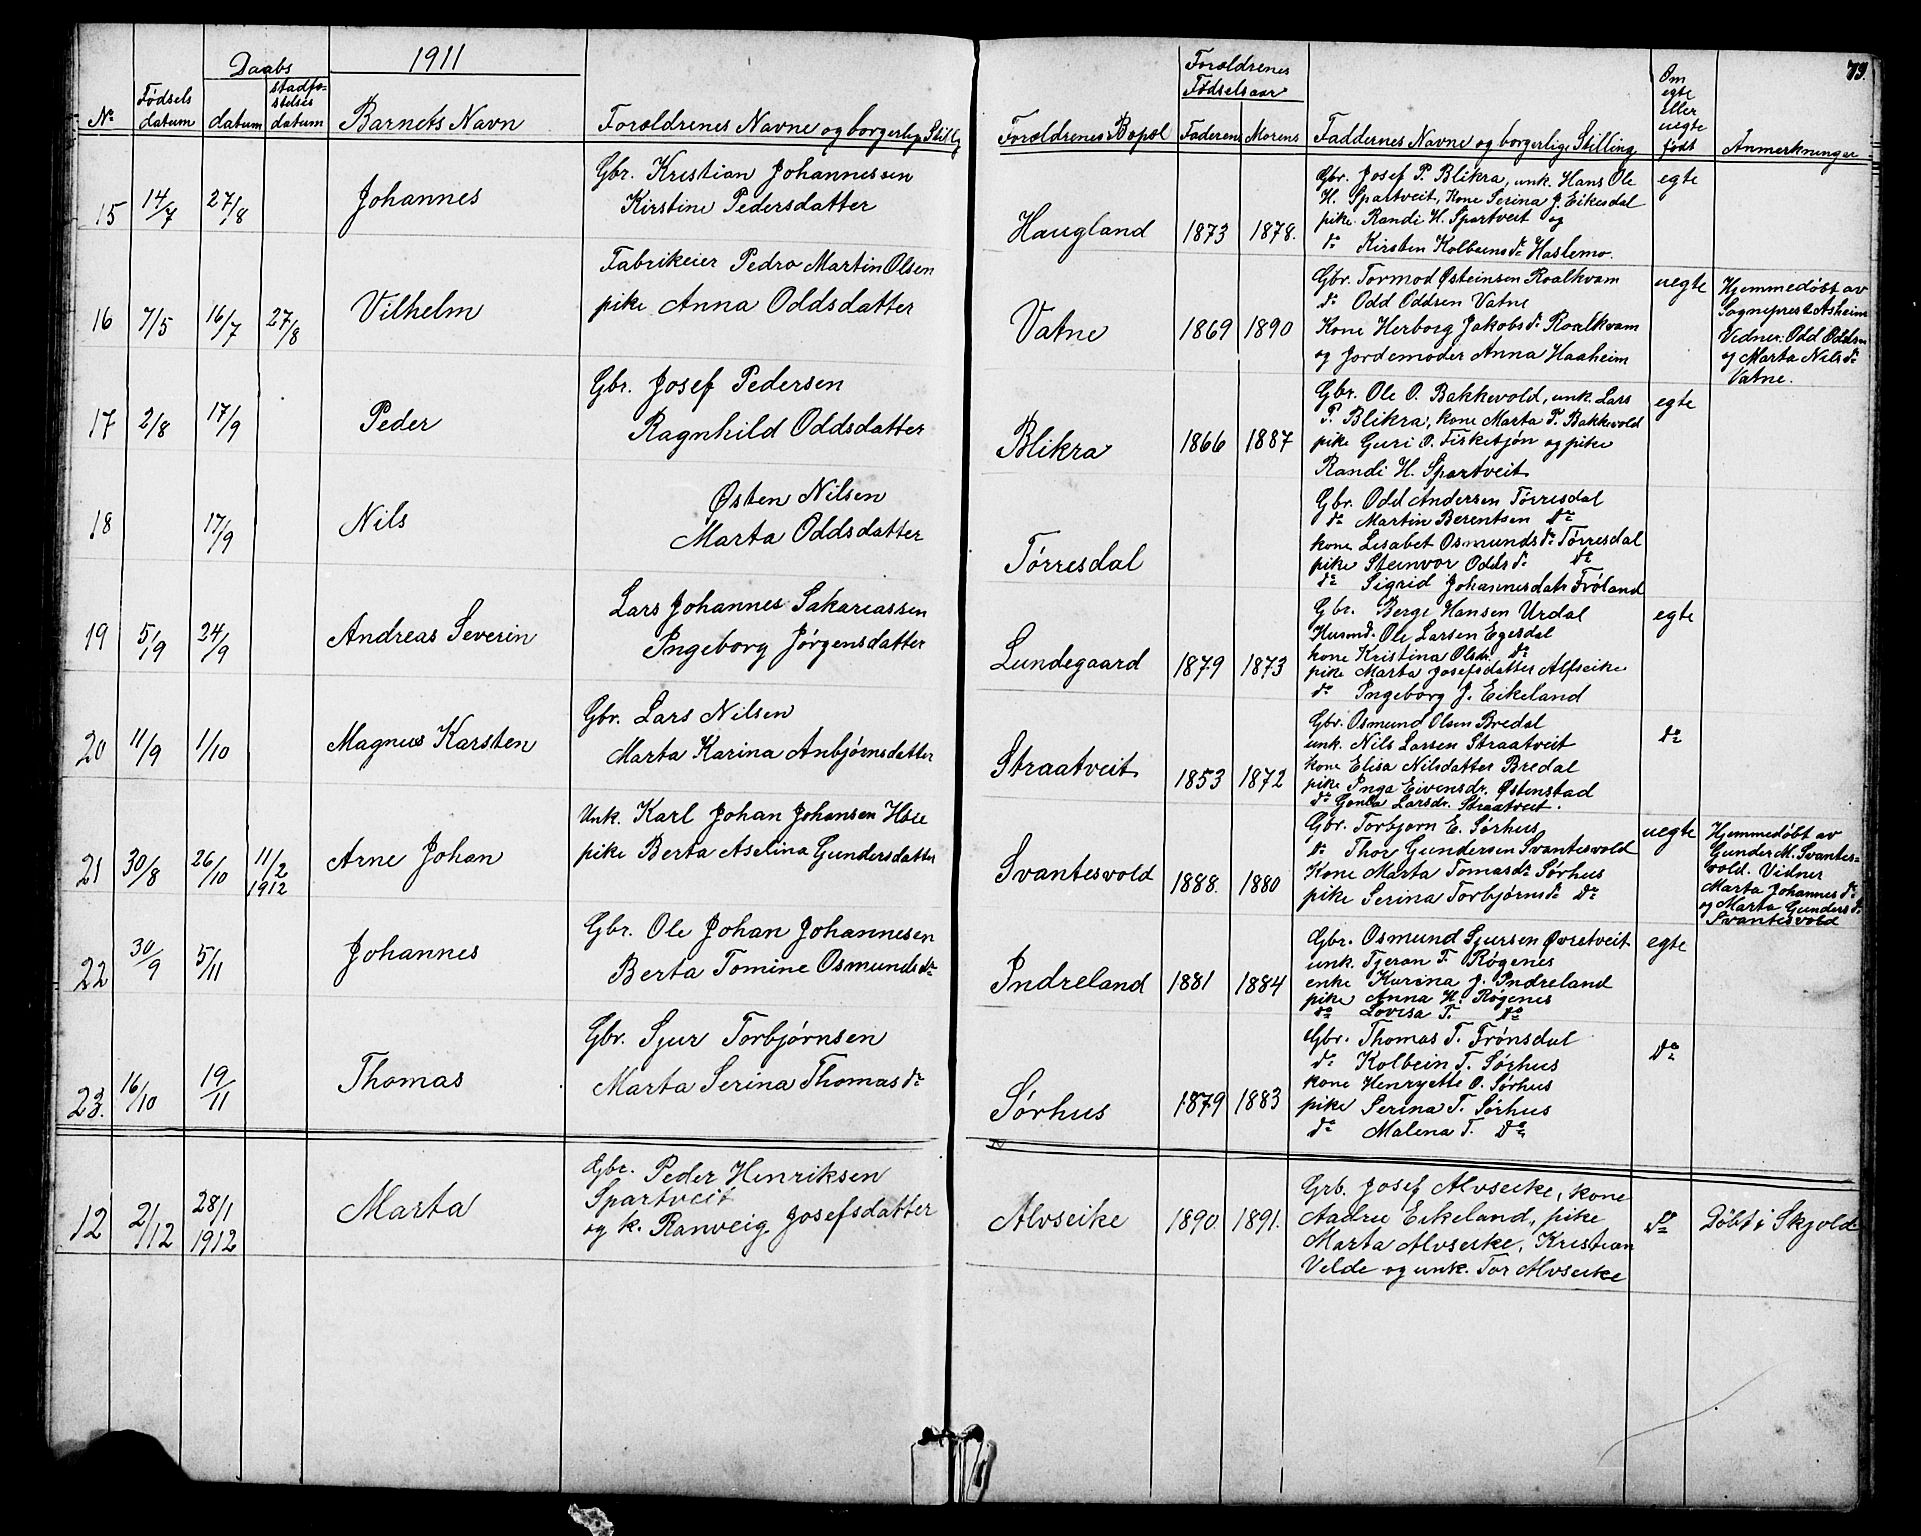 1911
No Fødsels datum Daabs datum stadfæstelses datum Barnets Navn Forældrenes Navne og borgerlig Stillg Forældrenes Bopæl Forældrenes Fødselsaar Faderens Morens Faddernes Navne og borgerlige Stilling Om egte eller uegte født Anmerkninger
73.
15 14/7 27/8 Johannes
Gbr. Kristian Johannessen
Kirstine Pedersdatter
Haugland 1873 1878.
Gbr. Josef P. Blikra, unk. Hans Ole
H. Spartveit, Kone Serina J. Eikesdal
pike Randi H. Spartveit og
do Kirsten Kolbeensdr Haslemo.
egte
16 7/5 16/7 27/8 Vilhelm
Fabrikeier Pedro Martin Olsen
pike Anna Oddsdatter
Vatne 1869 1890
Gbr. Tormod Østeinsen Roalkvam
do Odd Oddsen Vatne
Kone Herborg Jakobsdr Roalkvam
og Jordemoder Anna Haaheim
uegte
Hjemmedøbt av
Sogneprest Asheim
Vedner: Odd Oddsen
og Marta Nilsdr
Vatne.
17 2/8 17/9 Peder
Gbr. Josef Pedersen
Ragnhild Oddsdatter
Blikra 1866 1887
Gbr. Ole O. Bakkevold, unk. Lars
P. Blikra, kone Marta T. Bakkevold
pike Guri O. Fisketjøn og pike
Randi H. Spartveit
egte
18 17/9 Nils
Østen Nilsen
Marta Oddsdatter
Tørresdal
Gbr. Odd Andersen Tørresdal
do Martin Berentsen do
kone Lisabet Osmundsdr Tørresdal
pike Steinvor Oddsdr do
do Sigrid Johannesdatr Frøland
19 5/9 24/9 Andreas Severin
Lars Johannes Sakariassen
Ingeborg Jørgensdatter
Lundegaard 1879 1873
Gbr. Berge Hansen Urdal
Husmd. Ole Larsen Egesdal
kone Kristina Olsdr. do
pike Marta Josefsdatter Alfseike
do Ingeborg J. Eikeland
egte
20 11/9 1/10 Magnus Karsten
Gbr. Lars Nilsen
Marta Karina Anbjørnsdatter
Straatveit 1853 1872
Gbr. Osmund Olsen Bredal
unk. Nils Larsen Straatveit
kone Elisa Nilsdatter Bredal
pike Inga Eivensdr. Østenstad
do Larsdr. Straatveit.
do
21 30/8 26/10 11/2 1912 Arne Johan
Unk. Karl Johan Johansen
pike Berta Aselina Gundersdatter
Svantesvold 1888. 1880
Gbr. Torbjørn E. Sørhus
do Thor Gundersen Svantesvold
Kone Marta Tomasdr Sørhus
pike Serina Torbjørnsdr do
uegte
Hjemmedøbt av
Gunder M. Svantes=
vold. Vidner
Marta Johannesdr
og Marta Gundersdr
Svantesvold
22 30/9 5/11 Johannes
Gbr. Ole Johan Johannesen
Berta Tomine Osmundsdr
Indreland 1881 1884
Gbr. Osmund Sjursen Øvretveit
unk. Tjeran T. Røgenes
enke Karina J. Indreland
pike Anna H. Røgenes
do Lovisa T. do
egte
23. 16/10 19/11 Thomas
Gbr. Sjur Torbjørnsen
Marta Serina Thomasdr
Sørhus 1879 1883
Gbr. Thomas T. Frønsdal
do Kolbein T. Sørhus
kone Henryette O. Sørhus
pike Serina T. Sørhus
do Malena T. do
do
12 2/12 28/1 1912 Marta
Gbr. Peder Henriksen
Spartveit
og k. Ranveig Josefsdatter
Alvseike 1890. 1891.
Grb. Josef Alvseike, kone
Eikeland, pike
Marta Alvseike, Kristian
Velde og unk. Tor Alvseike
do
Døbt i Skjold